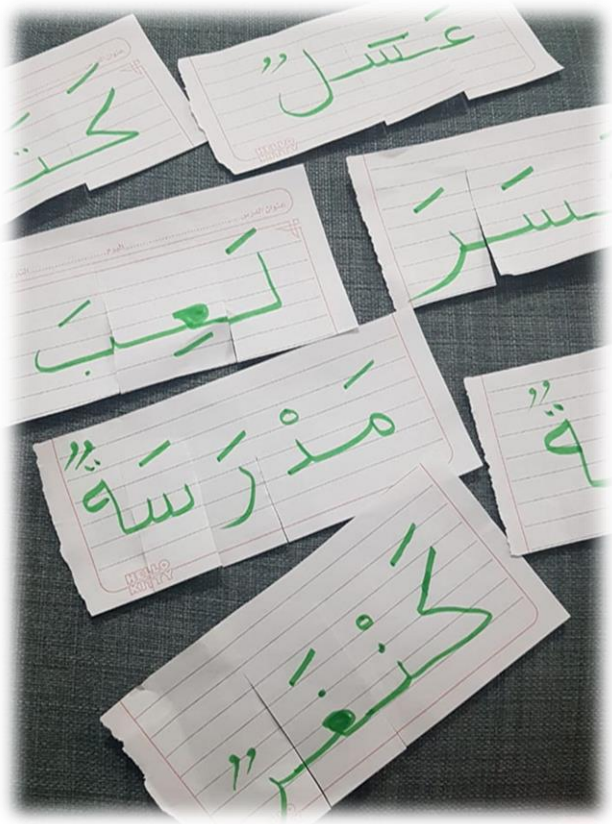 عَسَلٌ
كَتَـ
HELLO KITTY
ـسَرَ
عنوان الدرس
اليوم
لَعِبَ
مَدْرَسَةٌ
HELLO KITTY
ـةٌ
كَنْغَرٌ